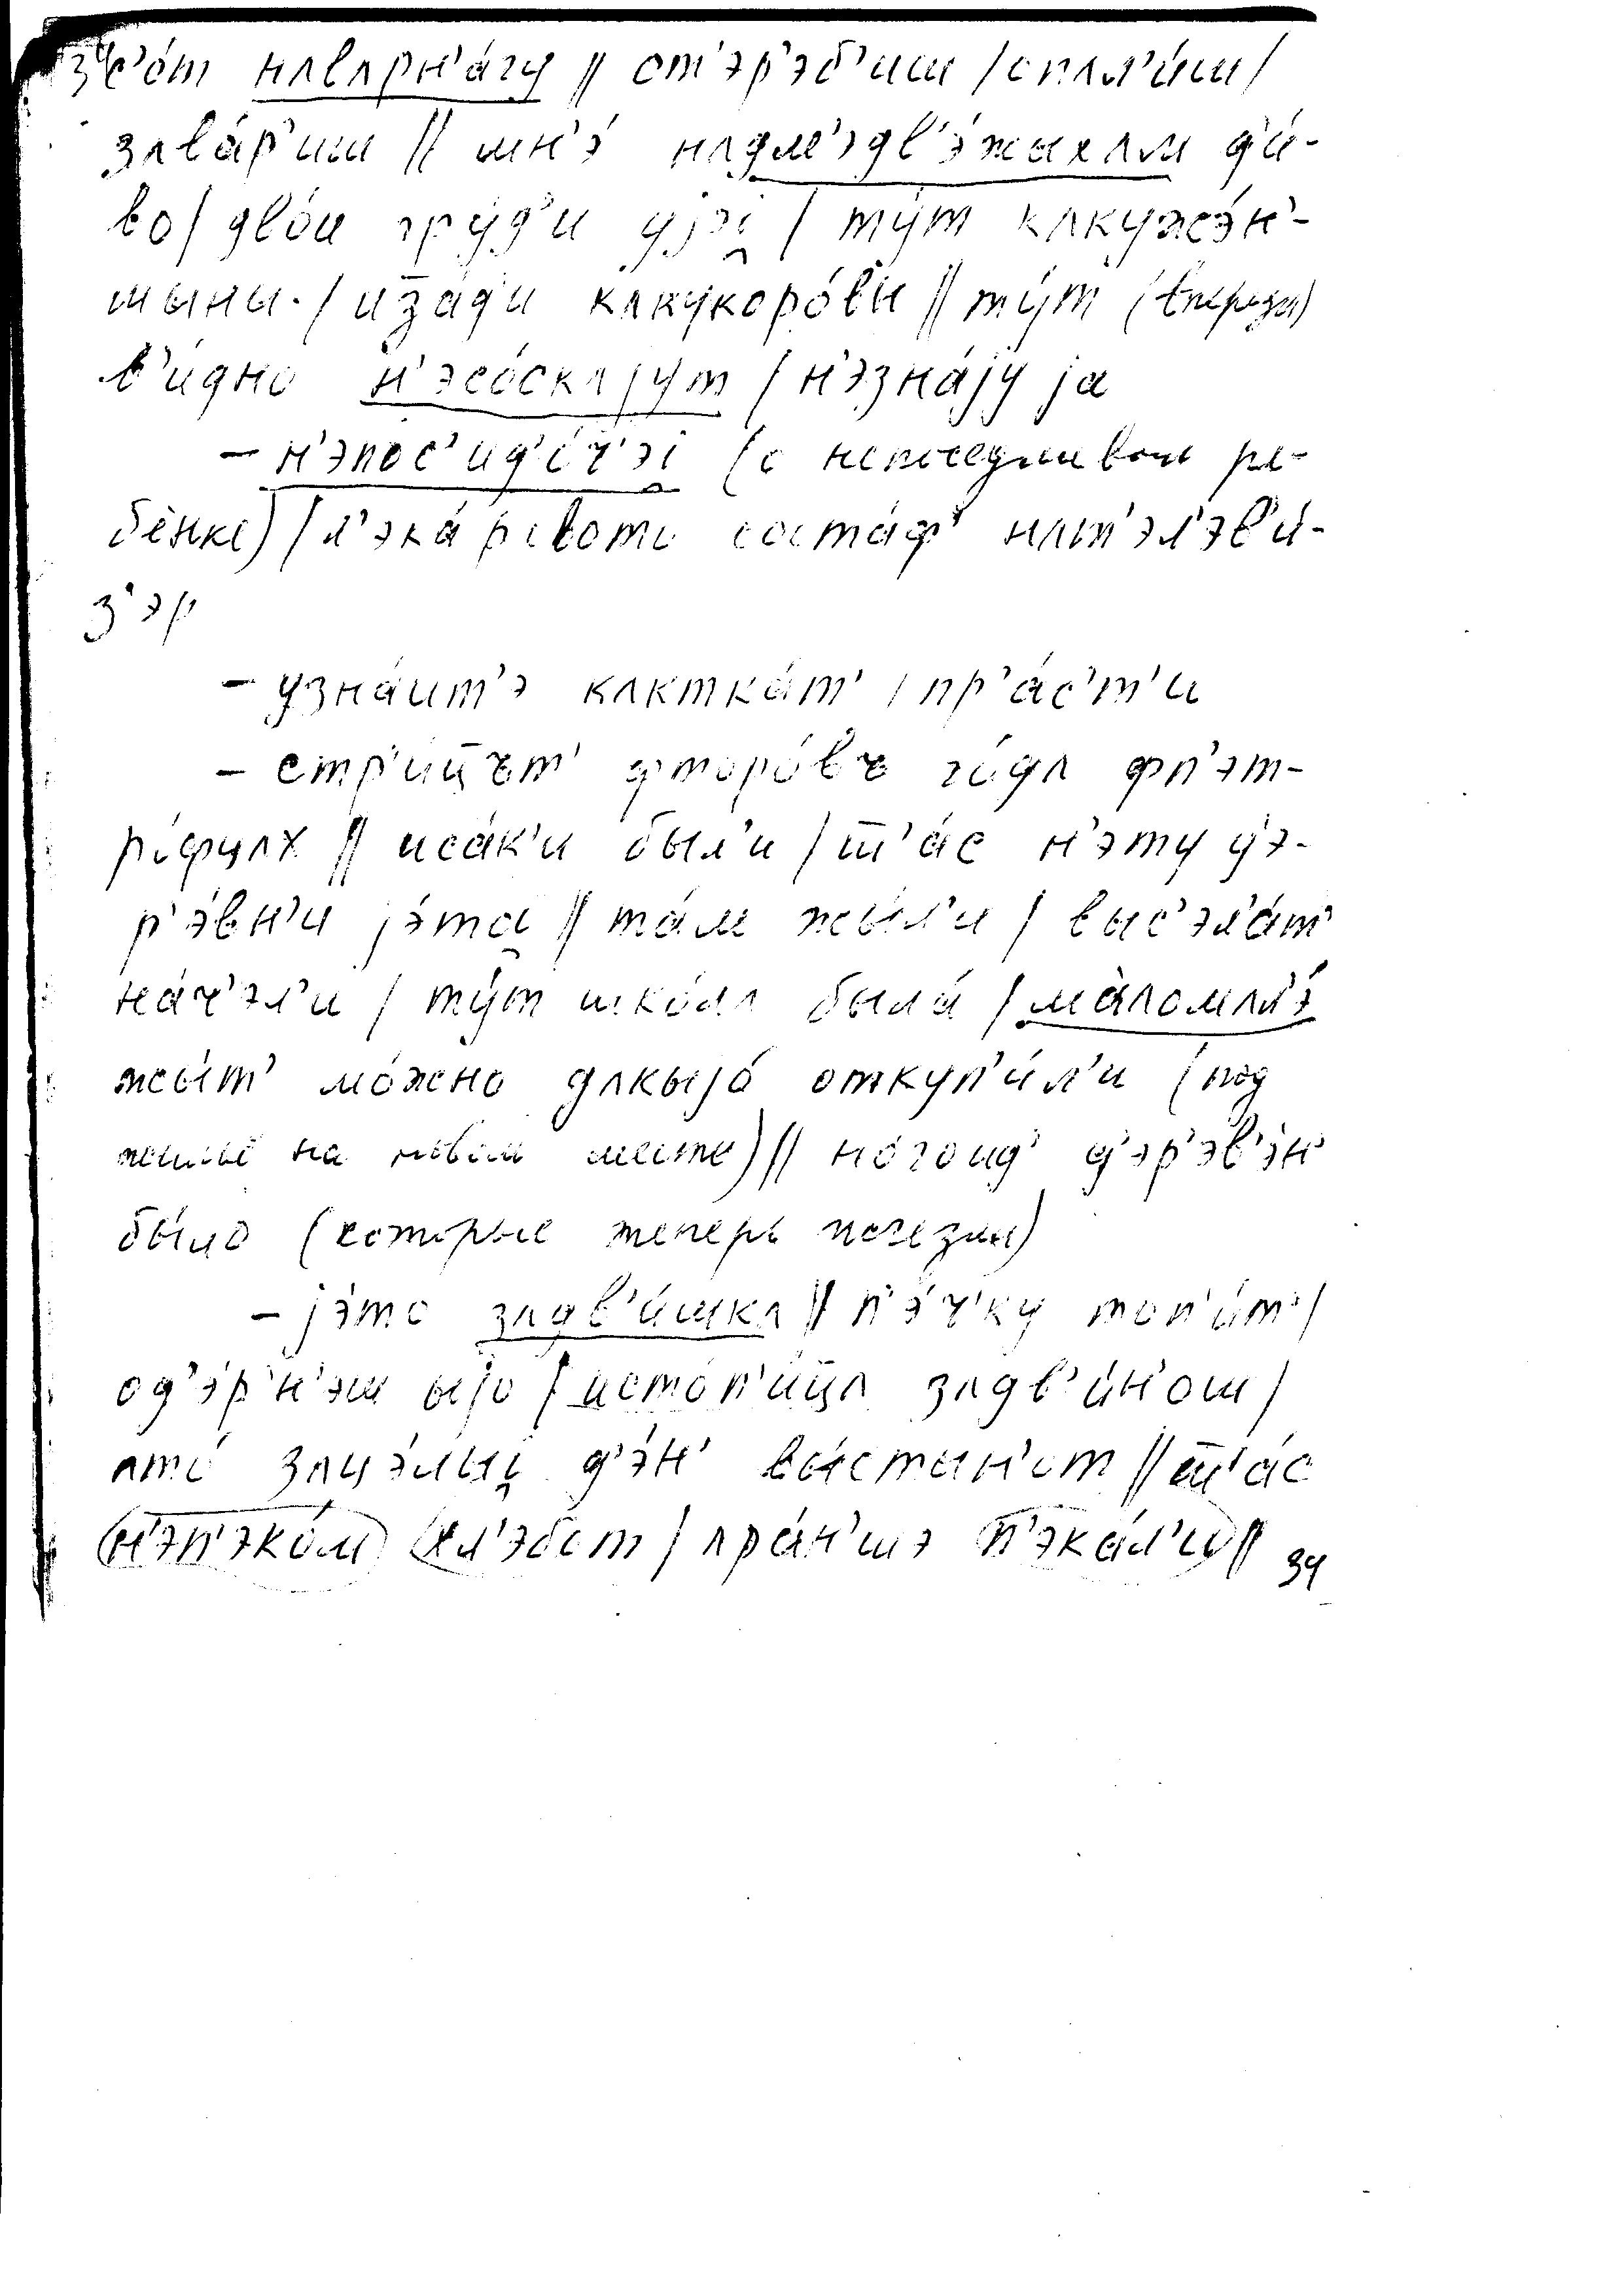 з'с'о́т нʌвʌрн'а́гу || от'эр'эб'иш / спʌл'и́ш /
зʌва́р'иш || мн'э́ нʌдм'эдв'э́жыхʌм д'и́-
во / дво́и гру́д'и у јэі̯ / ту́т кʌкужэ́н'-
шыны / иза́д'и кʌкукоро́вы || ту́т (впереди)
в'и́дно н'эсо́скʌјут / н'эзна́јy ја
– н'эпос'ид'о́ч'эі̯ (о непоседливом ре-
бёнке) / л'эка́рство соста́ф' нʌт'эл'эв'и́-
з'эр
– узна́ит'э кʌктка́т' / пр'а́с'т'и
– стр'и́цът' фторо́въ го́дʌ фп'эт-
ро́фцʌх || иса́к'и был'и / т'а́с н'эту д'э-
р'э́вн'и јэ́тоі̯ || та́м жы́л'и / выс'эл'а́т'
на́ч'эл'и / ту́т шко́лʌ была́ / ма̀ломʌл'э́
жы́т' мо́жно дʌкыјо́ откуп'и́л'и (под
жильё на новом месте) || но́гоид' д'эр'эв'э́н'
бы́ло (которые теперь исчезли)
– јэ́то зʌдв'и́шкʌ || п'э́ч'ку топ'и́т' /
од'э́р'н'эш ыјо / исто́п'ицʌ зʌдв'и́н'ош /
ʌто́ зʌцэ́лыі̯ д'э́н' вы́стын'от || т'а́с
н'эп'эко́м хл'эбот / ʌра́н'шэ п'эка́л'и || 34